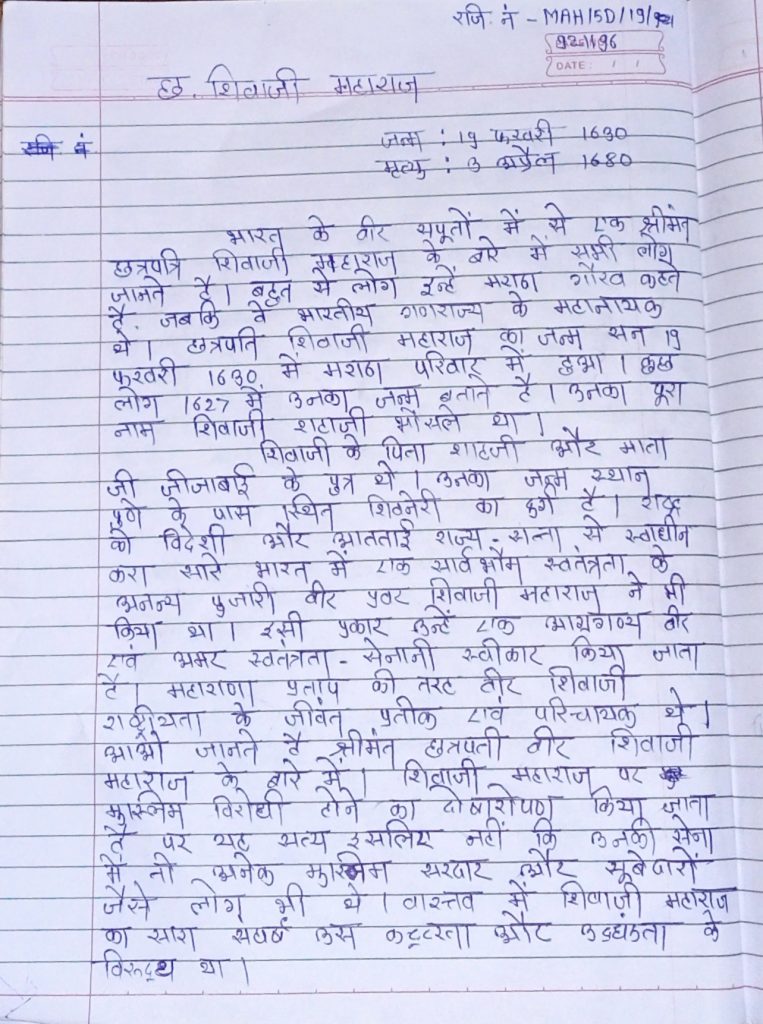 रजि. नं - MAH/SD/19/
921196
DATE: / /
छ. शिवाजी महाराज
जन्म : 19 फरवरी 1630
रजि नं
मृत्यु : 3 अप्रैल 1680
भारत के वीर सपूतों में से एक श्रीमंत
छत्रपत्रि शिवाजी महाराज के बारे में सभी लोग
जानते है। बहुत से लोग इन्हें मराठा गौरव कहते
है. जबकि वे भारतीय गणराज्य के महानायक
थे। छत्रपति शिवाजी महाराज का जन्म सन 19
फरवरी 1630 में मराठा परिवार में हुआ। कुछ
लोग 1627 में उनका जन्म बताते है। उनका पूरा
नाम शिवाजी शहाजी भोंसले था।
शिवाजी के पिता शाहजी और माता
जी जीजाबाई के पुत्र थे। उनका जन्म स्थान
पुणे के पास स्थित शिवनेरी का दुर्ग है। राष्ट्र
को विदेशी और आतताई राज्य-सत्ता से स्वाधीन
करा सारे भारत में एक सार्वभौम स्वतंत्रता के
अनन्य पुजारी वीर प्रवर शिवाजी महाराज ने भी
किया था। इसी प्रकार उन्हें एक अग्रगण्य वीर
एवं अमर स्वतंत्रता-सेनानी स्वीकार किया जाता
है। महाराणा प्रताप की तरह वीर शिवाजी
राष्ट्रीयता के जीवंत प्रतीक एवं परिचायक थे।
आओ जानते है श्रीमंत छत्रपती वीर शिवाजी
महाराज के बारे में। शिवाजी महाराज पर
मुस्लिम विरोधी होने का दोषारोपण किया जाता
है पर यह सत्य इसलिए नहीं कि उनकी सेना
में तो अनेक मुस्लिम सरदार और सूबेदारों
जैसे लोग भी थे। वास्तव में शिवाजी महाराज
का सारा संघर्ष उस कट्टरता और उद्दंडता के
विरुद्ध था।